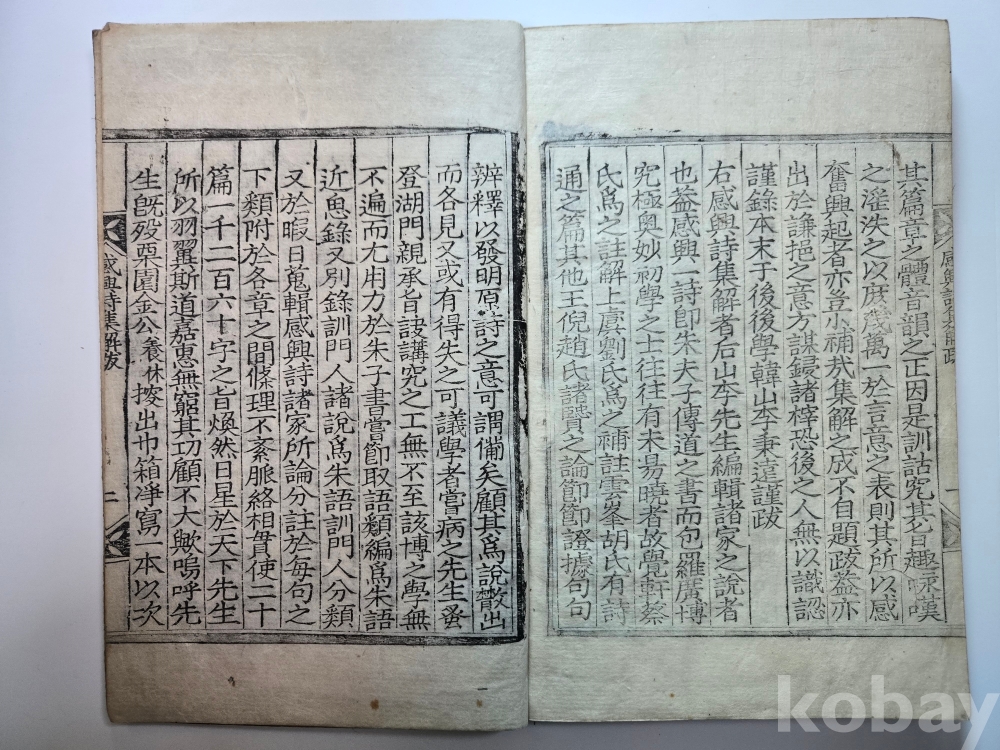 其篇章之體音韻之正因是訓詁究其旨趣永嘆
之淫泆之以庶幾萬一於言意之表則其所以感
奮興起者亦豈小補哉集解之成不自題跋蓋亦
出於謙挹之意方謀鋟諸梓恐後之人無以識認
謹錄本末于後後學韓山李秉遠謹跋
右感興詩集解者后山李先生編輯諸家之說者
也益感興一詩卽朱夫子傳道之書而包羅廣博
究極奧妙初學之士往往有未易曉者故覺軒蔡
氏爲之註解上虞劉氏爲之補註雲峯胡氏有詩
通之篇其他王倪趙氏諸賢之論節節證據句句
感興詩集解跋
一
辨釋以發明原詩之意可謂備矣顧其爲說散出
而各見又或有得失之可議學者嘗病之先生蚤
登湖門親承旨訣講究之工無不至該博之學無
不遍而尤用力於朱子書嘗節取語類編爲朱語
近思錄又別錄訓門人諸說爲朱語訓門人分類
又於暇日蒐輯感興詩諸家所論分註於每句之
下類附於各章之間條理不紊脈絡相貫使二十
篇一千二百六十字之旨煥然日星於天下先生
所以羽翼斯道嘉惠無窮其功顧不大歟嗚呼先
生旣歿栗園金公養休搜出巾箱淨寫一本以次
感興詩集解跋
二
kobay